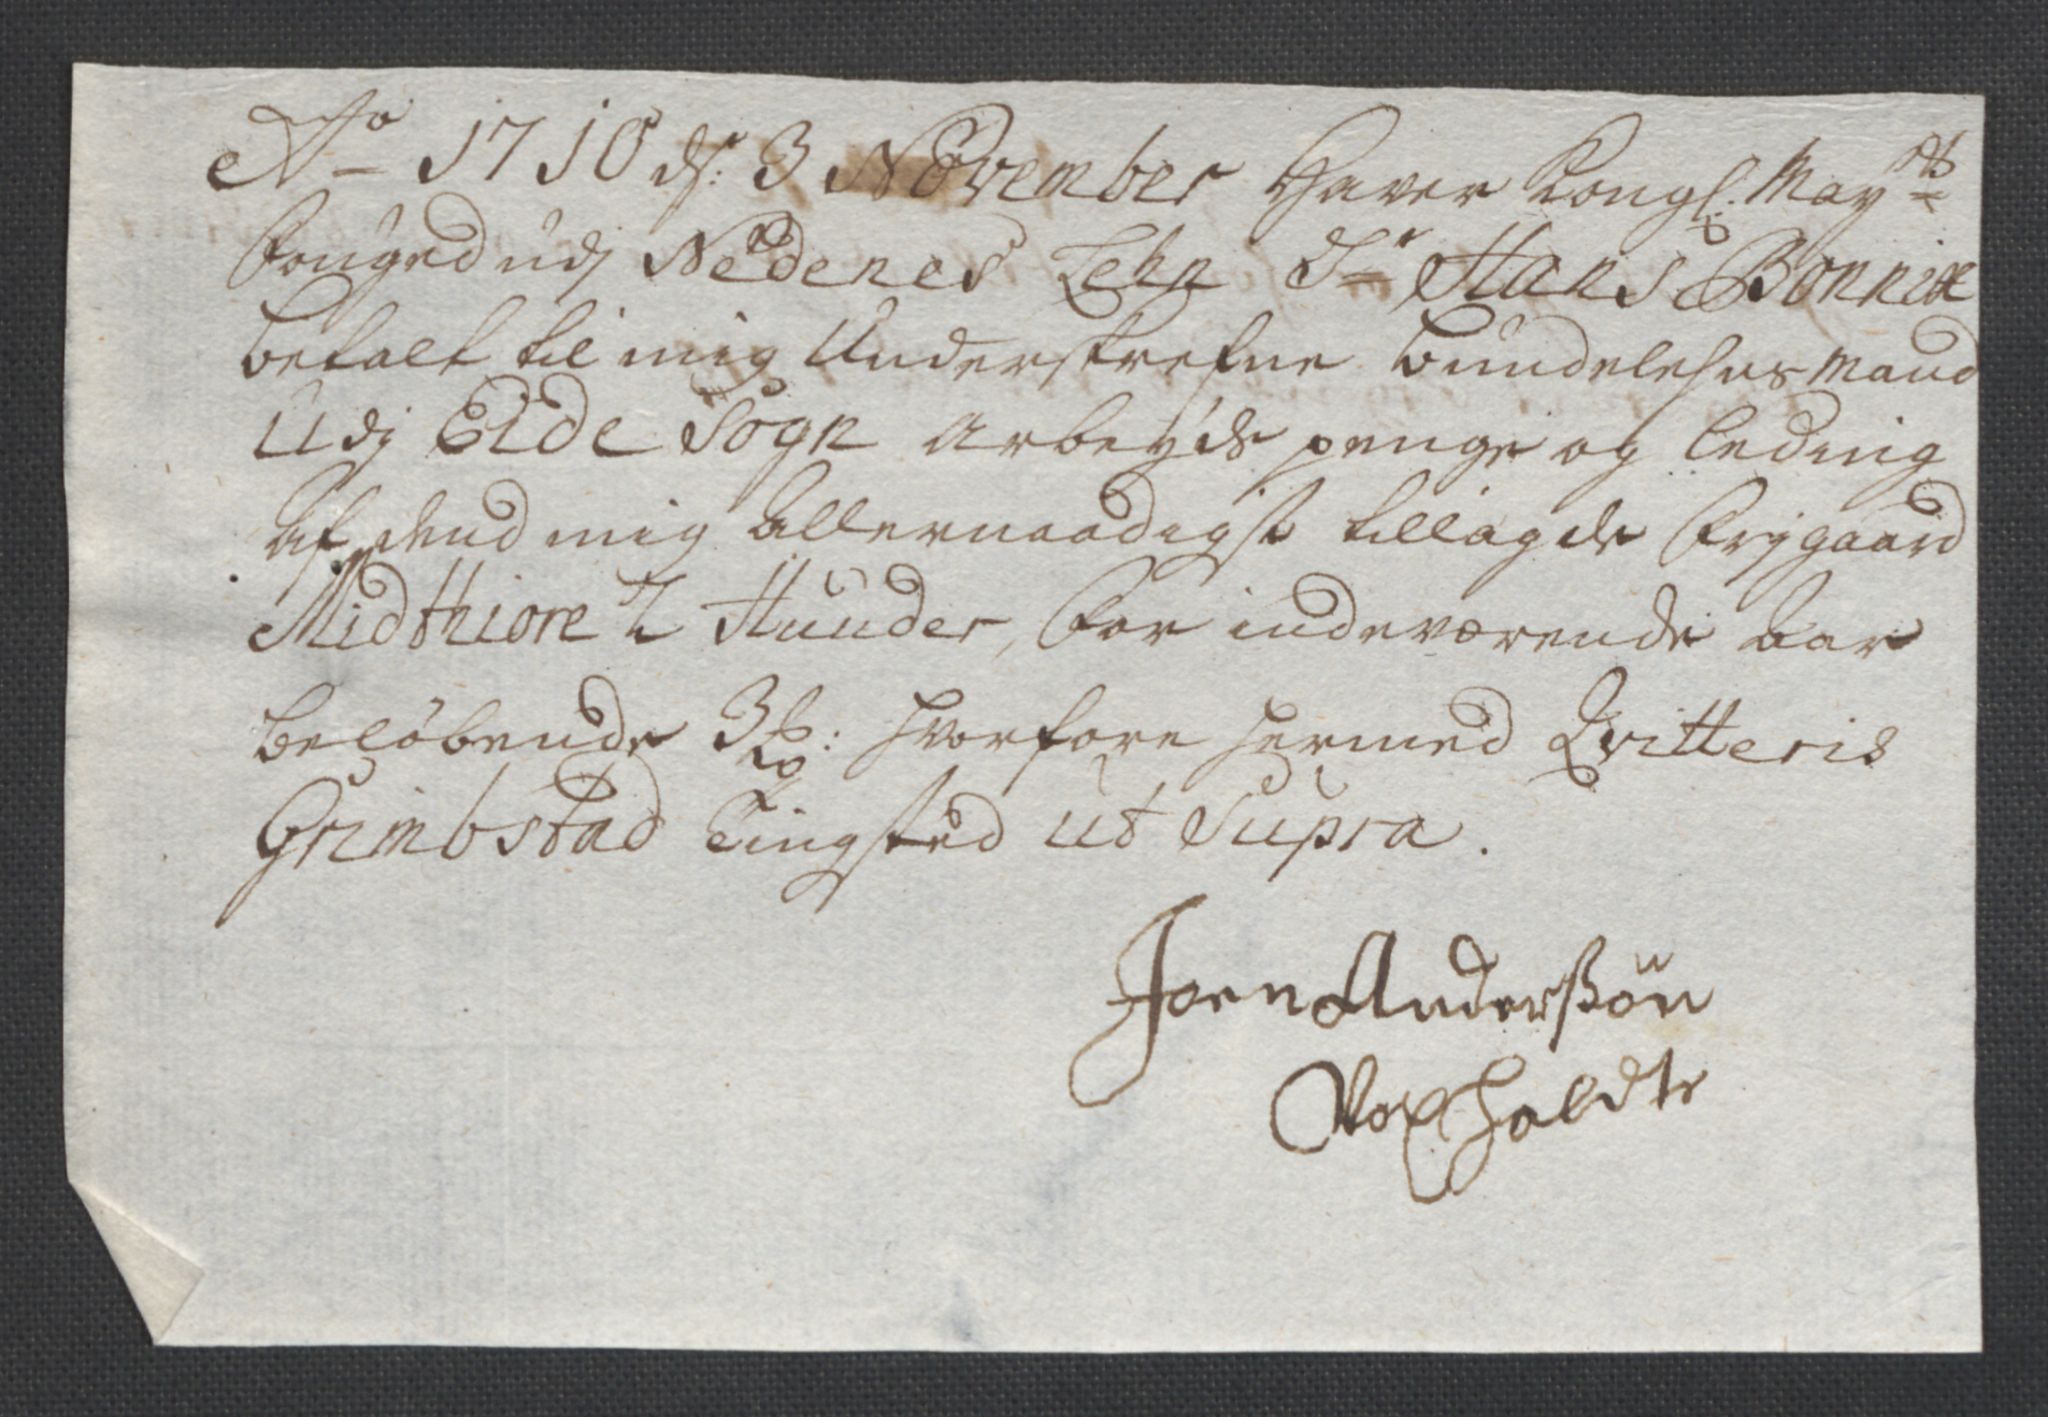 Ao 1710 d: 3 November Haver Kongl: Mayts
Fouged udj Nedenes Lehn Sr Hans Bonnix
betalt til mig Underskrefne bundelehnsmand
Udj Eide Sogn Arbeyds penge og leding
af dend mig Allernaadigst tillagde frygaard
Midthiore 2 Hunder, for indeværende Aar
beløbende 3 : hvorfore hermed Qvitteris
Grimbstad Tingsted ut Supra.
Joen Anderßøn
Voxholdt